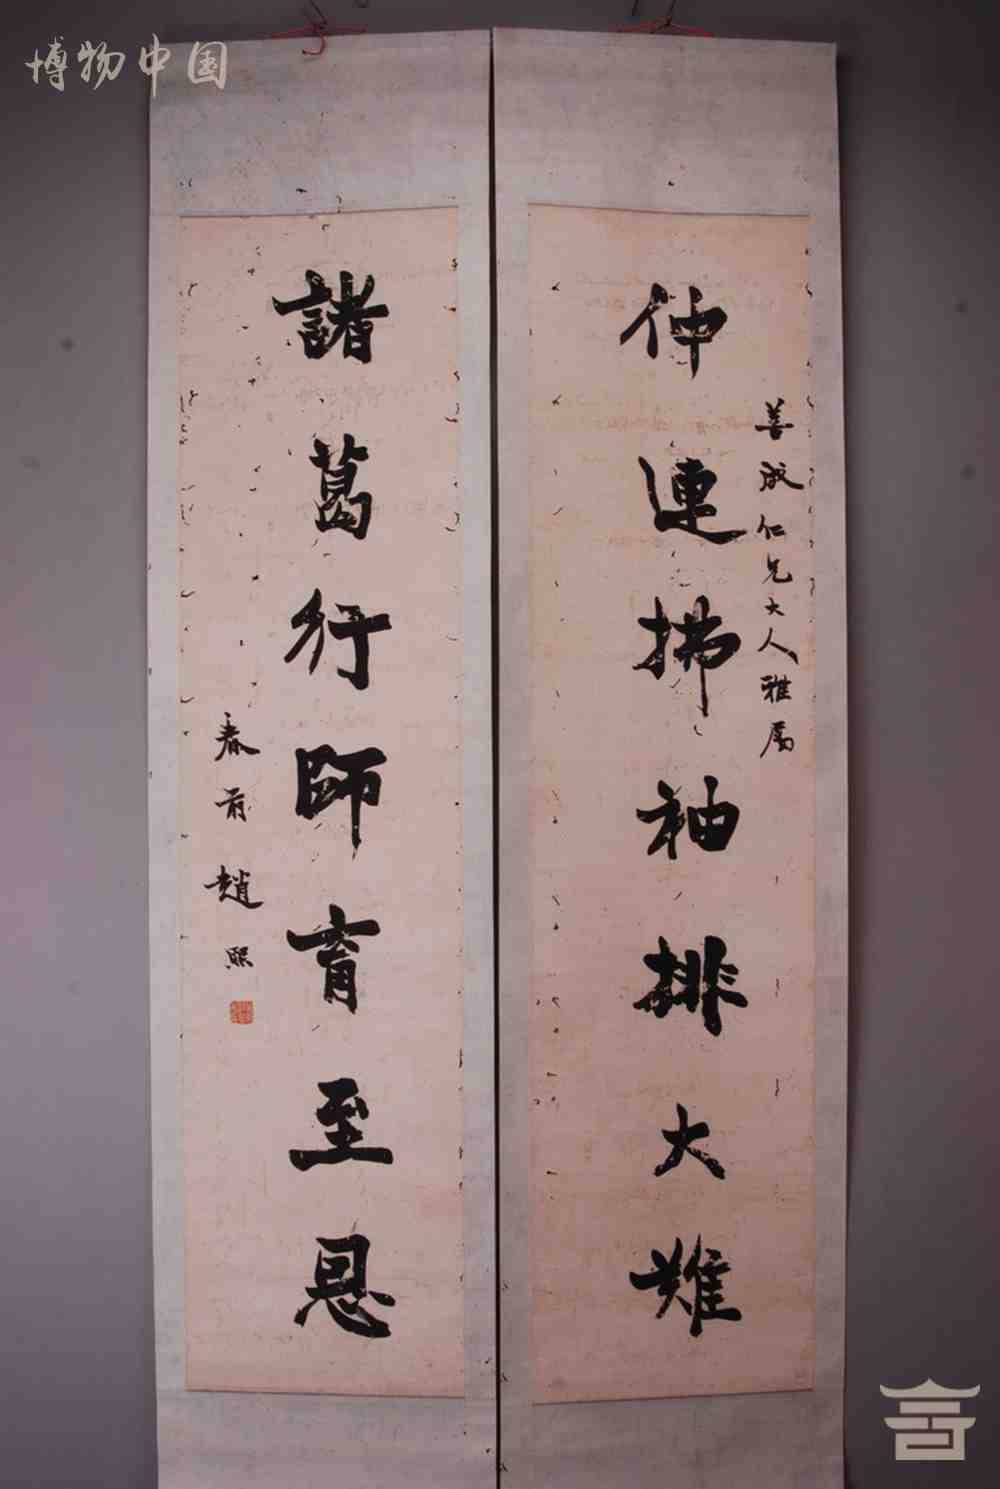 博物中国
善成仁兄大人雅属
仲連拂袖排大難
諸葛行師育至恩
春前趙熙